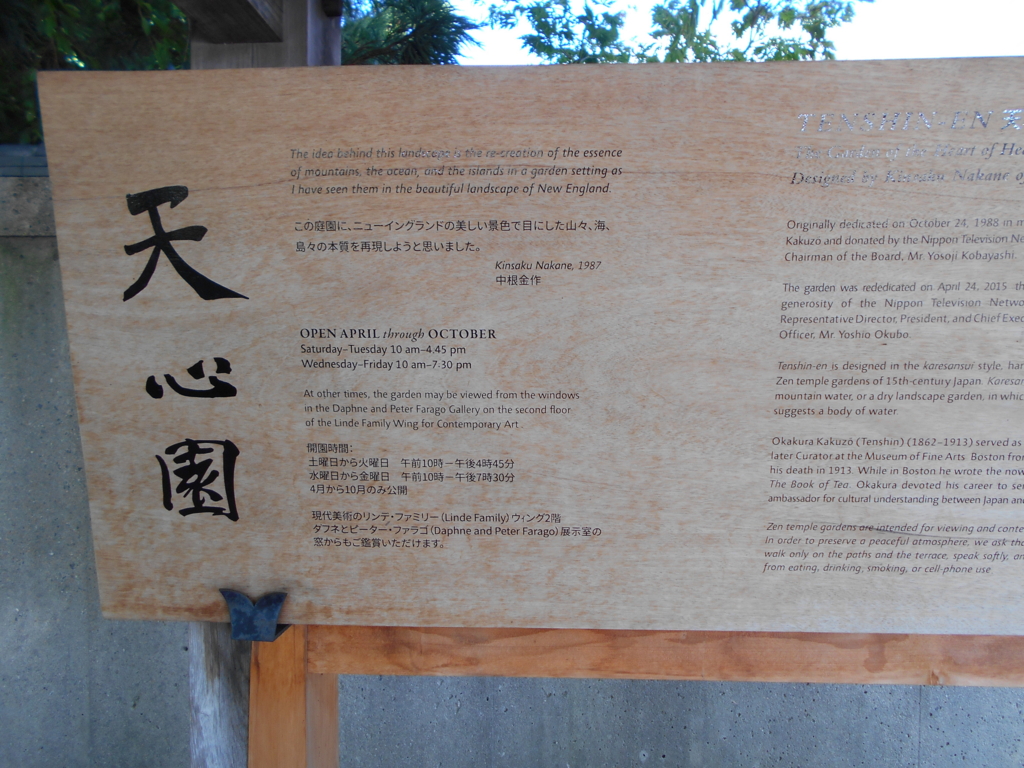 天心園
The idea behind this landscape is the re-creation of the essence
of mountains, the ocean, and the islands in a garden setting as
I have seen them in the beautiful landscape of New England.
この庭園に、ニューイングランドの美しい景色で目にした山々、海、
島々の本質を再現しようと思いました。
Kinsaku Nakane, 1987
中根金作
OPEN APRIL through OCTOBER
Saturday–Tuesday 10 am–4:45 pm
Wednesday–Friday 10 am–7:30 pm
At other times, the garden may be viewed from the windows
in the Daphne and Peter Farago Gallery on the second floor
of the Linde Family Wing for Contemporary Art.
開園時間:
土曜日から火曜日 午前10時－午後4時45分
水曜日から金曜日 午前10時－午後7時30分
4月から10月のみ公開
現代美術のリンデ・ファミリー（Linde Family）ウィング2階
ダフネとピーター・ファラゴ（Daphne and Peter Farago）展示室の
窓からもご鑑賞いただけます。
TENSHIN-EN 天
The Garden of the Heart of Hea
Designed by Kinsaku Nakane of
Originally dedicated on October 24, 1988 in m
Kakuzō and donated by the Nippon Television Ne
Chairman of the Board, Mr. Yosoji Kobayashi.
The garden was rededicated on April 24, 2015 th
generosity of the Nippon Television Netwo
Representative Director, President, and Chief Exec
Officer, Mr. Yoshio Okubo.
Tenshin-en is designed in the karesansui style, har
Zen temple gardens of 15th-century Japan. Karesan
mountain water, or a dry landscape garden, in whic
suggests a body of water.
Okakura Kakuzō (Tenshin) (1862–1913) served as
later Curator at the Museum of Fine Arts, Boston fro
his death in 1913. While in Boston he wrote the now
The Book of Tea. Okakura devoted his career to ser
ambassador for cultural understanding between Japan and
Zen temple gardens are intended for viewing and conte
In order to preserve a peaceful atmosphere, we ask tha
walk only on the paths and the terrace, speak softly, an
from eating, drinking, smoking, or cell-phone use.